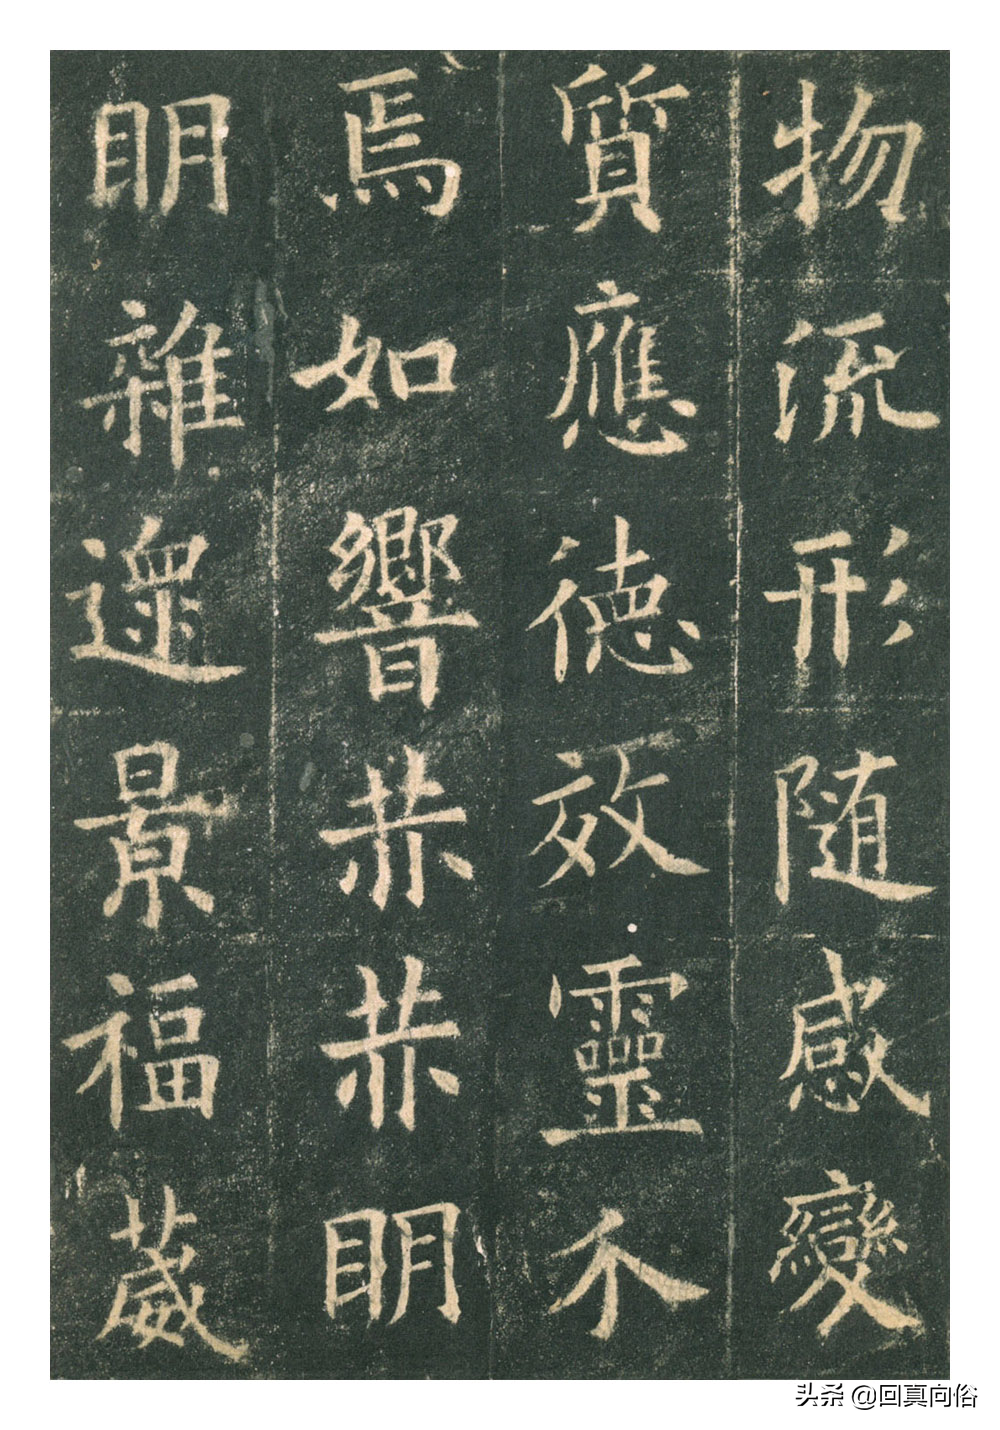 物流形随感變
質應德效靈介
焉如響赫赫明
明雜遝景福葳
头条 @回真向俗